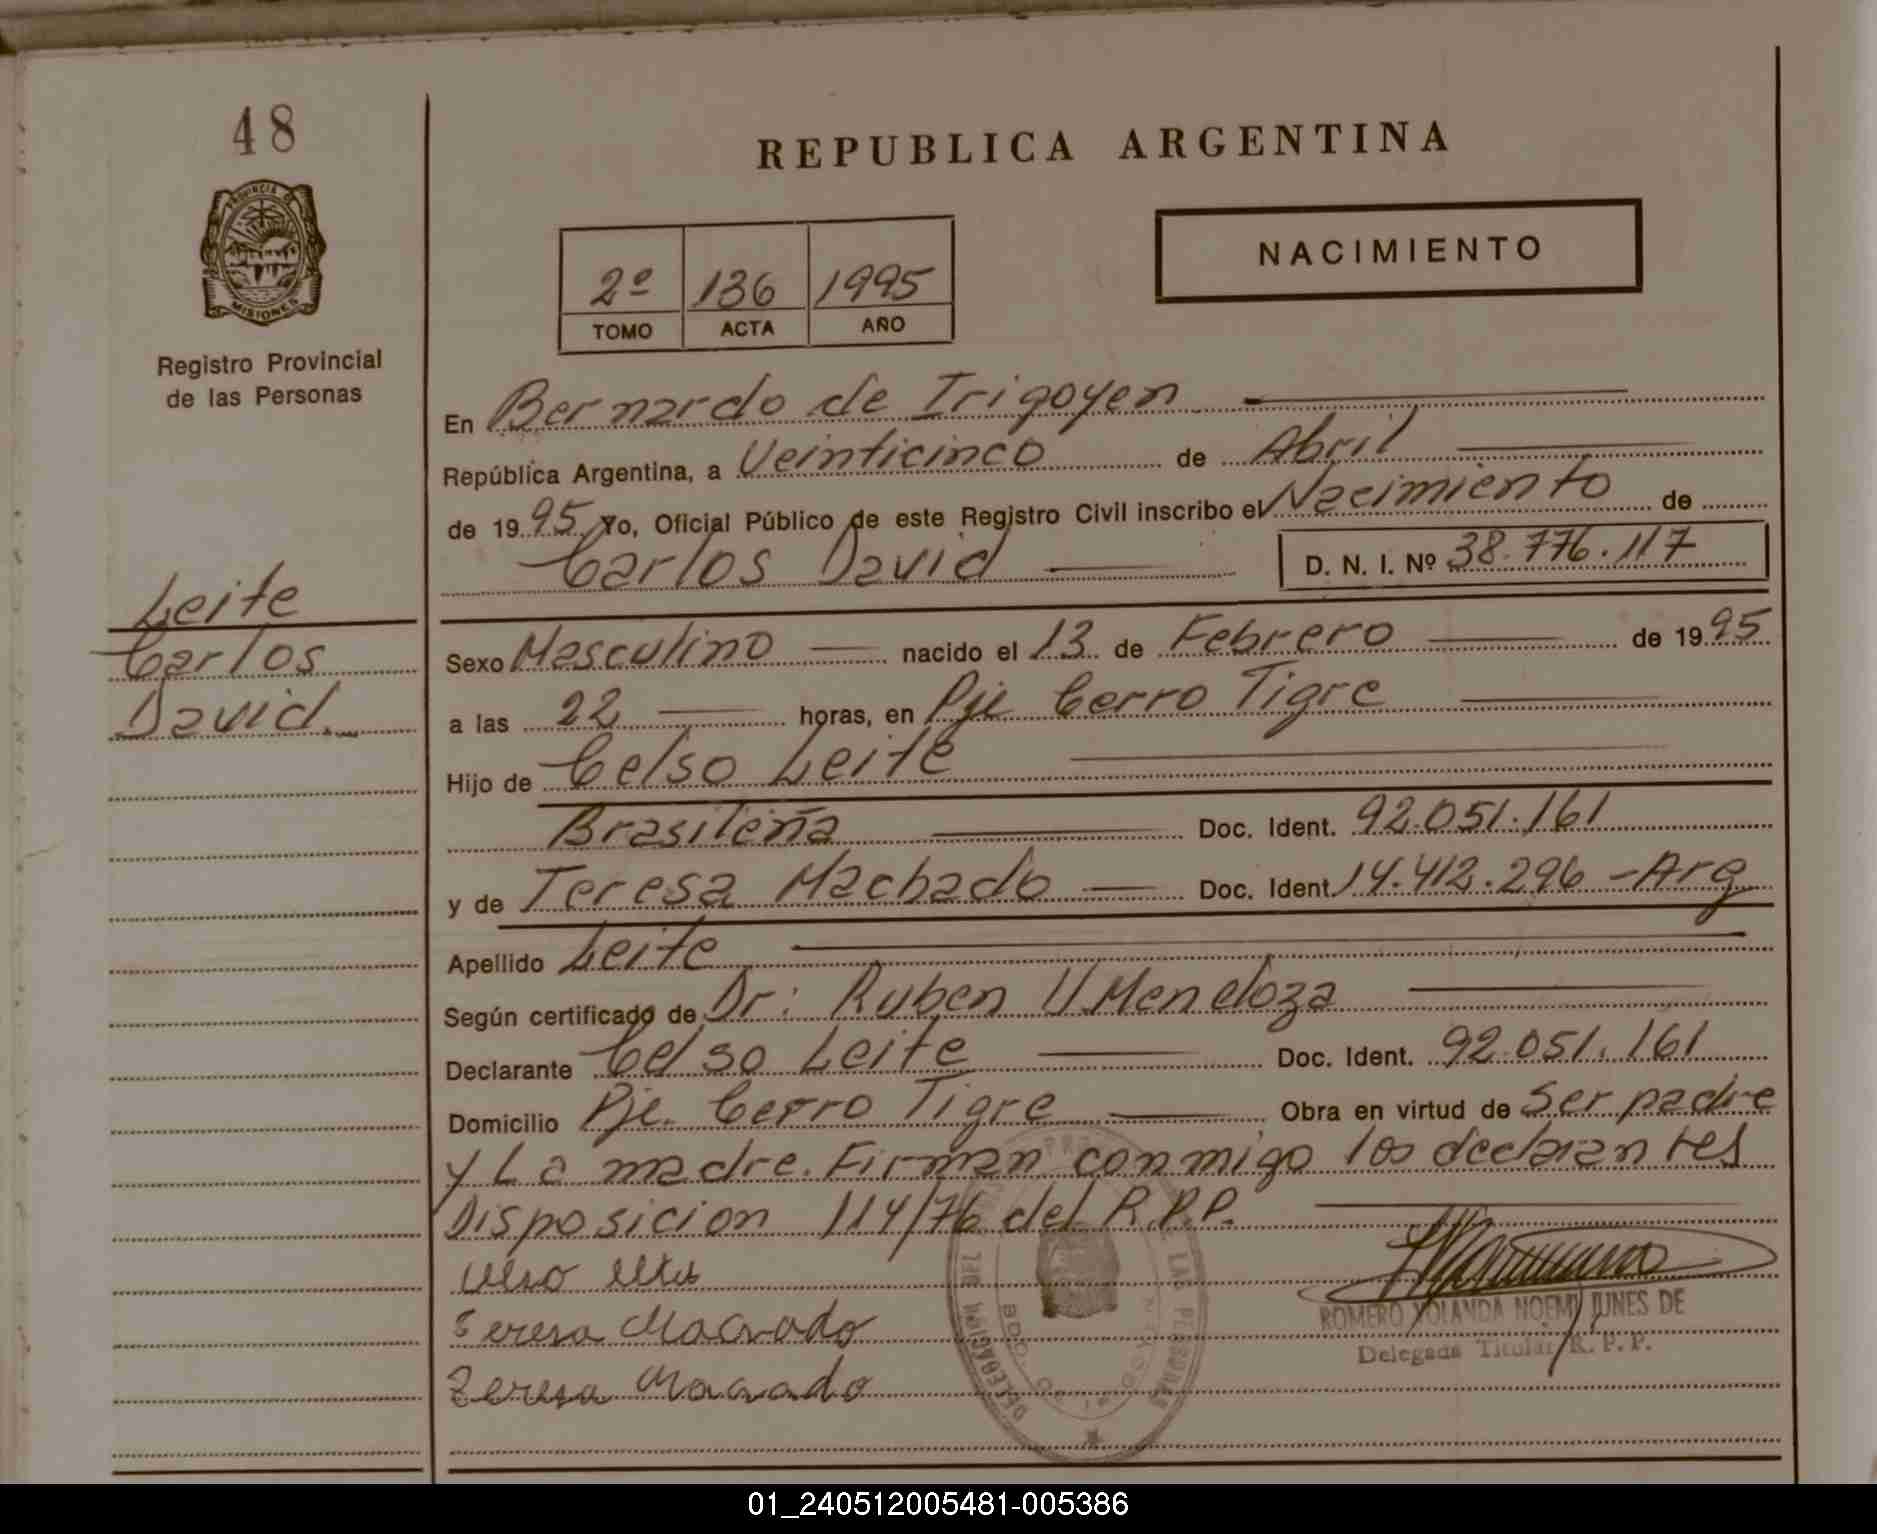 48
REPUBLICA ARGENTINA
PROVINCIA D
MISIONES
NACIMIENTO
2º 136 1995
TOMO ACTA AÑO
Registro Provincial
de las Personas
En Bernardo de Irigoyen
República Argentina, a Veinticinco de Abril
de 1995 Yo, Oficial Público de este Registro Civil inscribo el Nacimiento de
Carlos David D. N. I. Nº 38.776.117
Leite
Carlos
David.
Sexo Masculino nacido el 13 de Febrero de 1995
a las 22 horas, en Pje Cerro Tigre
Hijo de Celso Leite
Brasileña Doc. Ident. 92.051.161
y de Teresa Machado Doc. Ident. 14.412.296 - Arg
Apellido Leite
Según certificado de Dr: Ruben V Mendoza
Declarante Celso Leite Doc. Ident. 92.051.161
Domicilio Pje. Cerro Tigre Obra en virtud de Ser padre
y La madre. Firman conmigo los declarantes
Disposicion 114/76 del R.P.P.
Celso Leite
Teresa Macvado
Teresa Macvado
LAS PERSONAS
ROMERO YOLANDA NOEMI JUNES DE
Delegada Titular R. P. P.
01_240512005481-005386